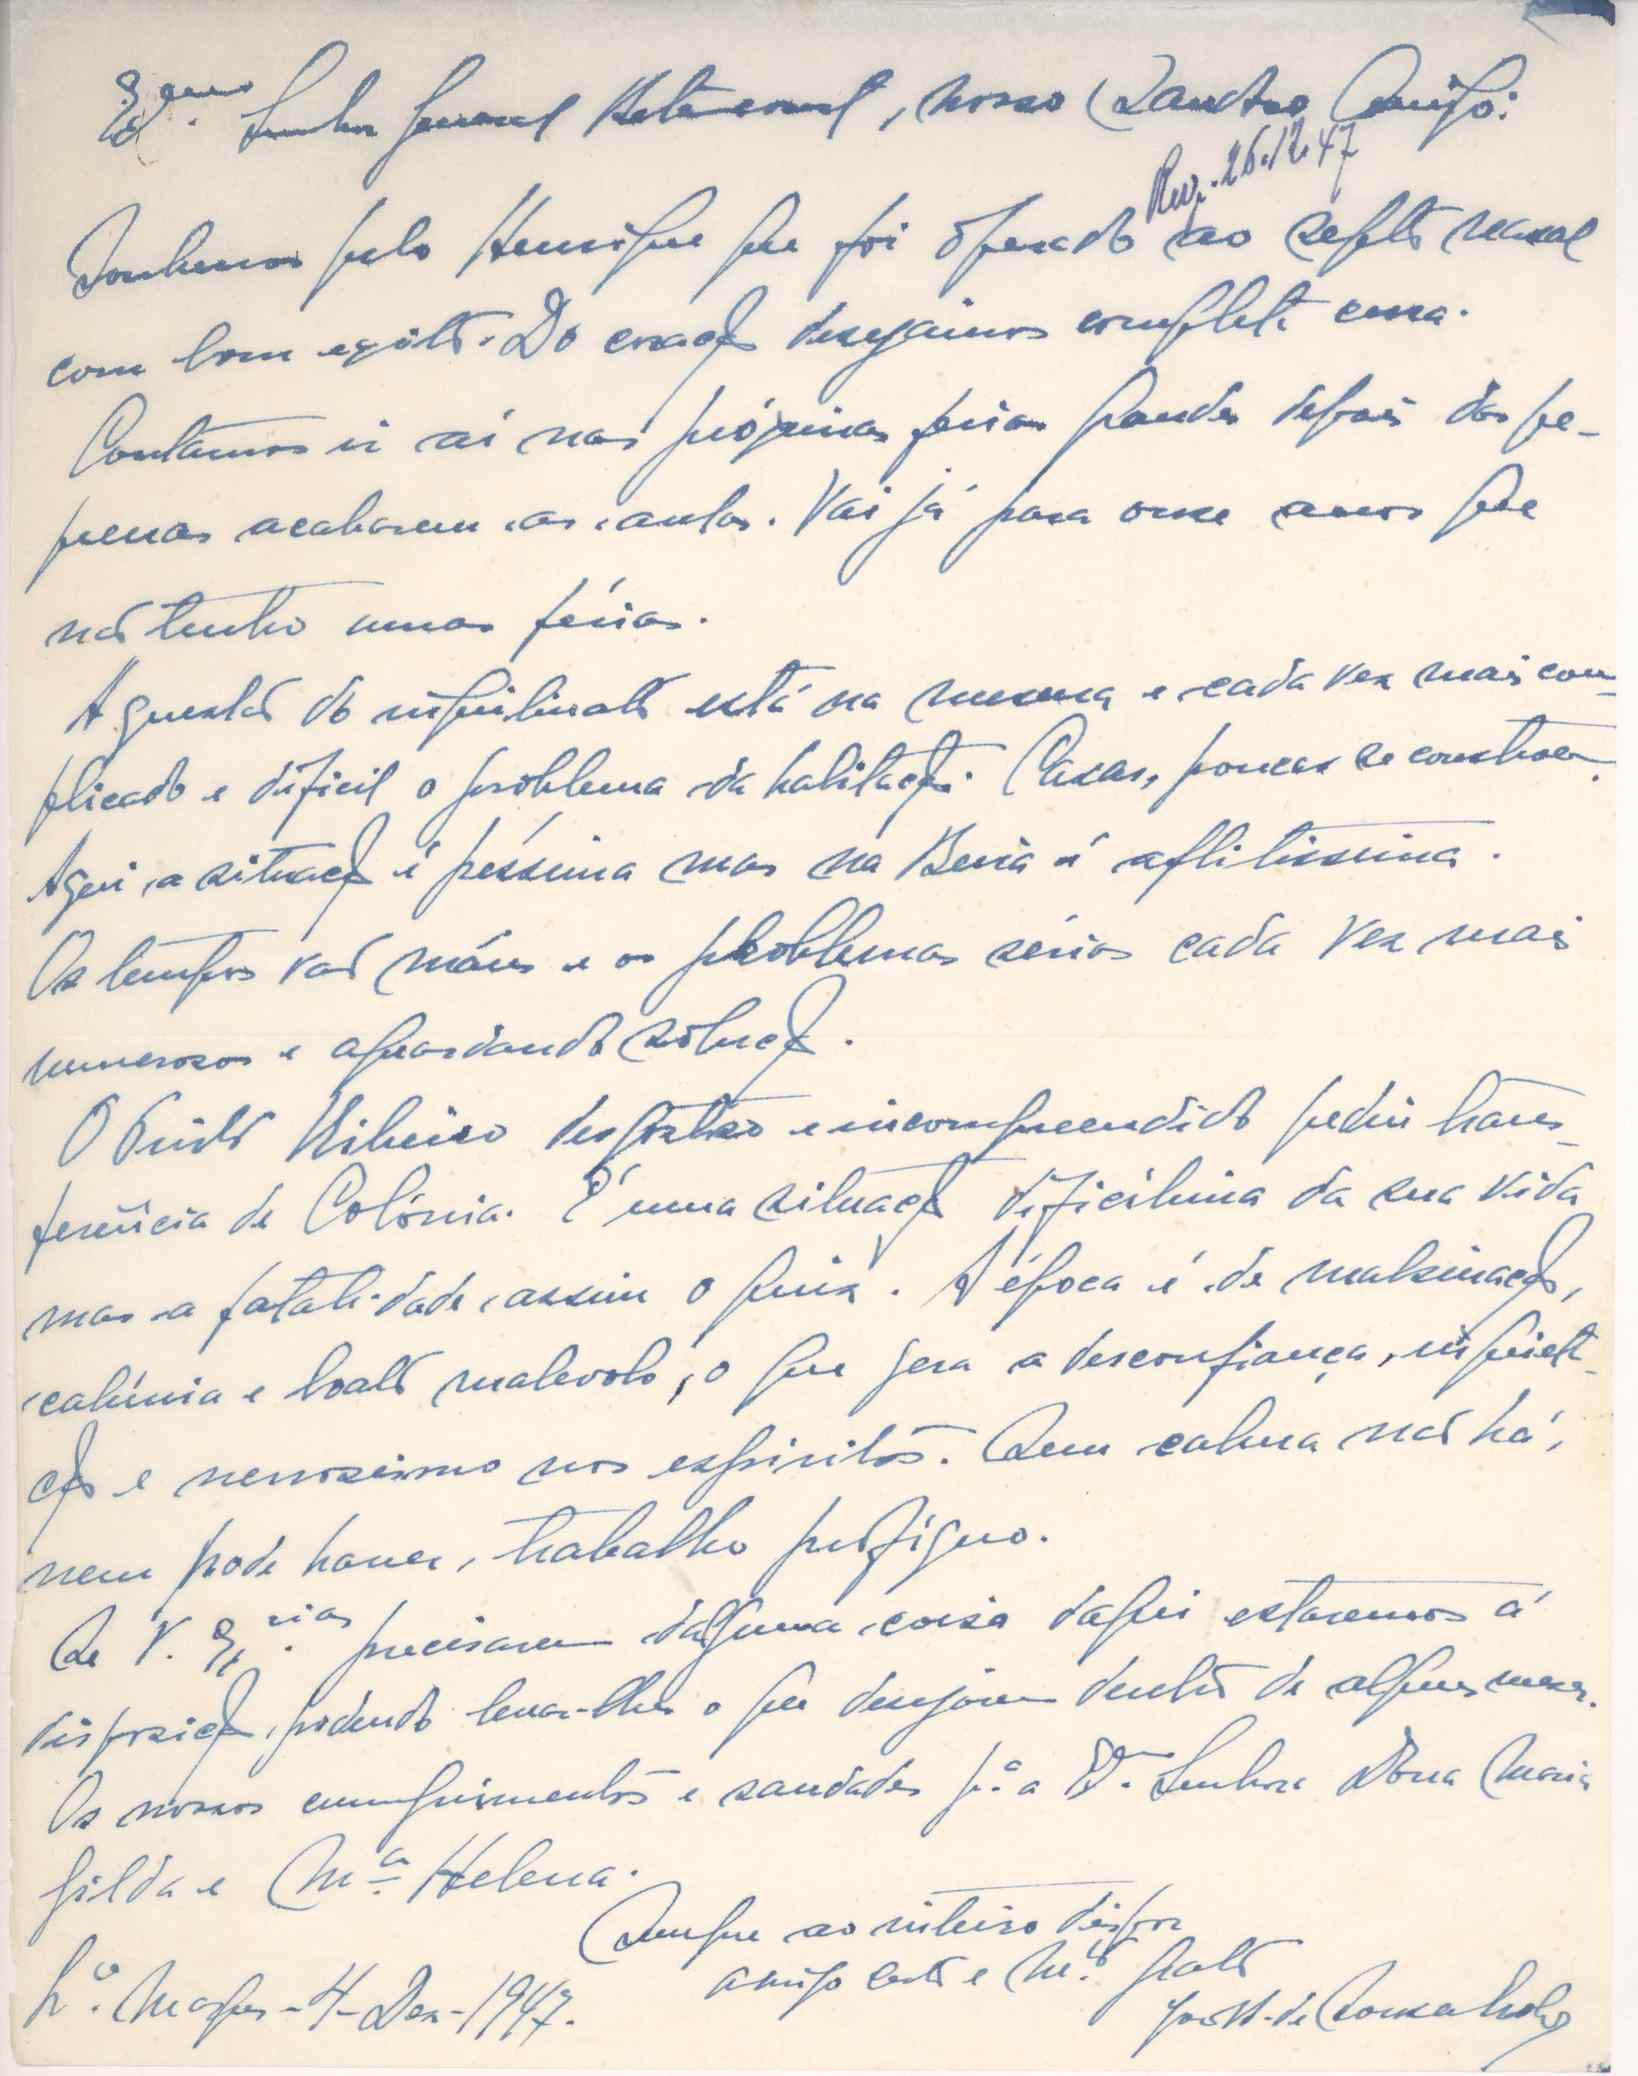 Exmo. Senhor General Betencourt, nosso Saudoso Amigo:
Resp. 26.12.47
Soubemos pelo Henrique que foi operado ao septo nasal
com bom exito. Do coração desejamos completa cura.
Contamos ir aí nas próximas ferias grandes depois das pe-
quenas acabarem as aulas. Vai já para onze anos que
não tenho umas férias.
A questão do inquilinato está na mesma e cada vez mais com-
plicado e dificil o problema da habitação. Casas, poucas se constroem.
Aqui a situação é péssima mas na Beira é aflitissima.
Os tempos vão máus e os problemas sérios cada vez mais
numerosos e aguardando solução.
O Pinto Ribeiro desgostoso e incompreendido pediu trans-
ferência de Colónia. É uma situação dificilima da sua vida
mas a fatalidade assim o quiz. A época é de malsinação,
calúnia e boato malevolo, o que gera a desconfiança, inquieta-
ção e nervosismo nos espiritos. Sem calma não há,
nem pode haver, trabalho profiguo.
Se V. Ex.cias precisarem dalguma coisa daqui estaremos á
disposição, podendo levar-lhes o que desejarem dentro de alguns meses.
Os nossos cumprimentos e saudades p.a a Sr.a Senhora Dona Maria
Gilda e M.a Helena.
Sempre ao inteiro dispor
amigo certo e M.to grato
L.ço Marques - 4 - Dez - 1947.
de Sousa